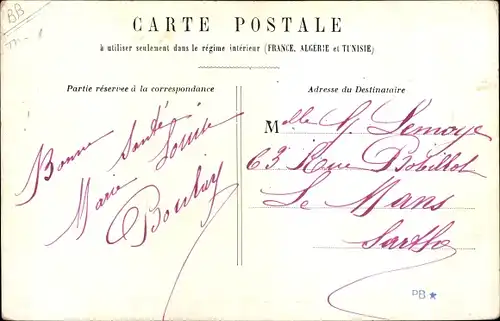 BB
CARTE POSTALE
à utiliser seulement dans le régime intérieur (FRANCE, ALGERIE et TUNISIE)
Partie réservée à la correspondance
Adresse du Destinataire
Bonne Santé
Marie Louise
Melle G. Lemoye
63 Rue Bobillot
Le Mans
Sarthe
PB